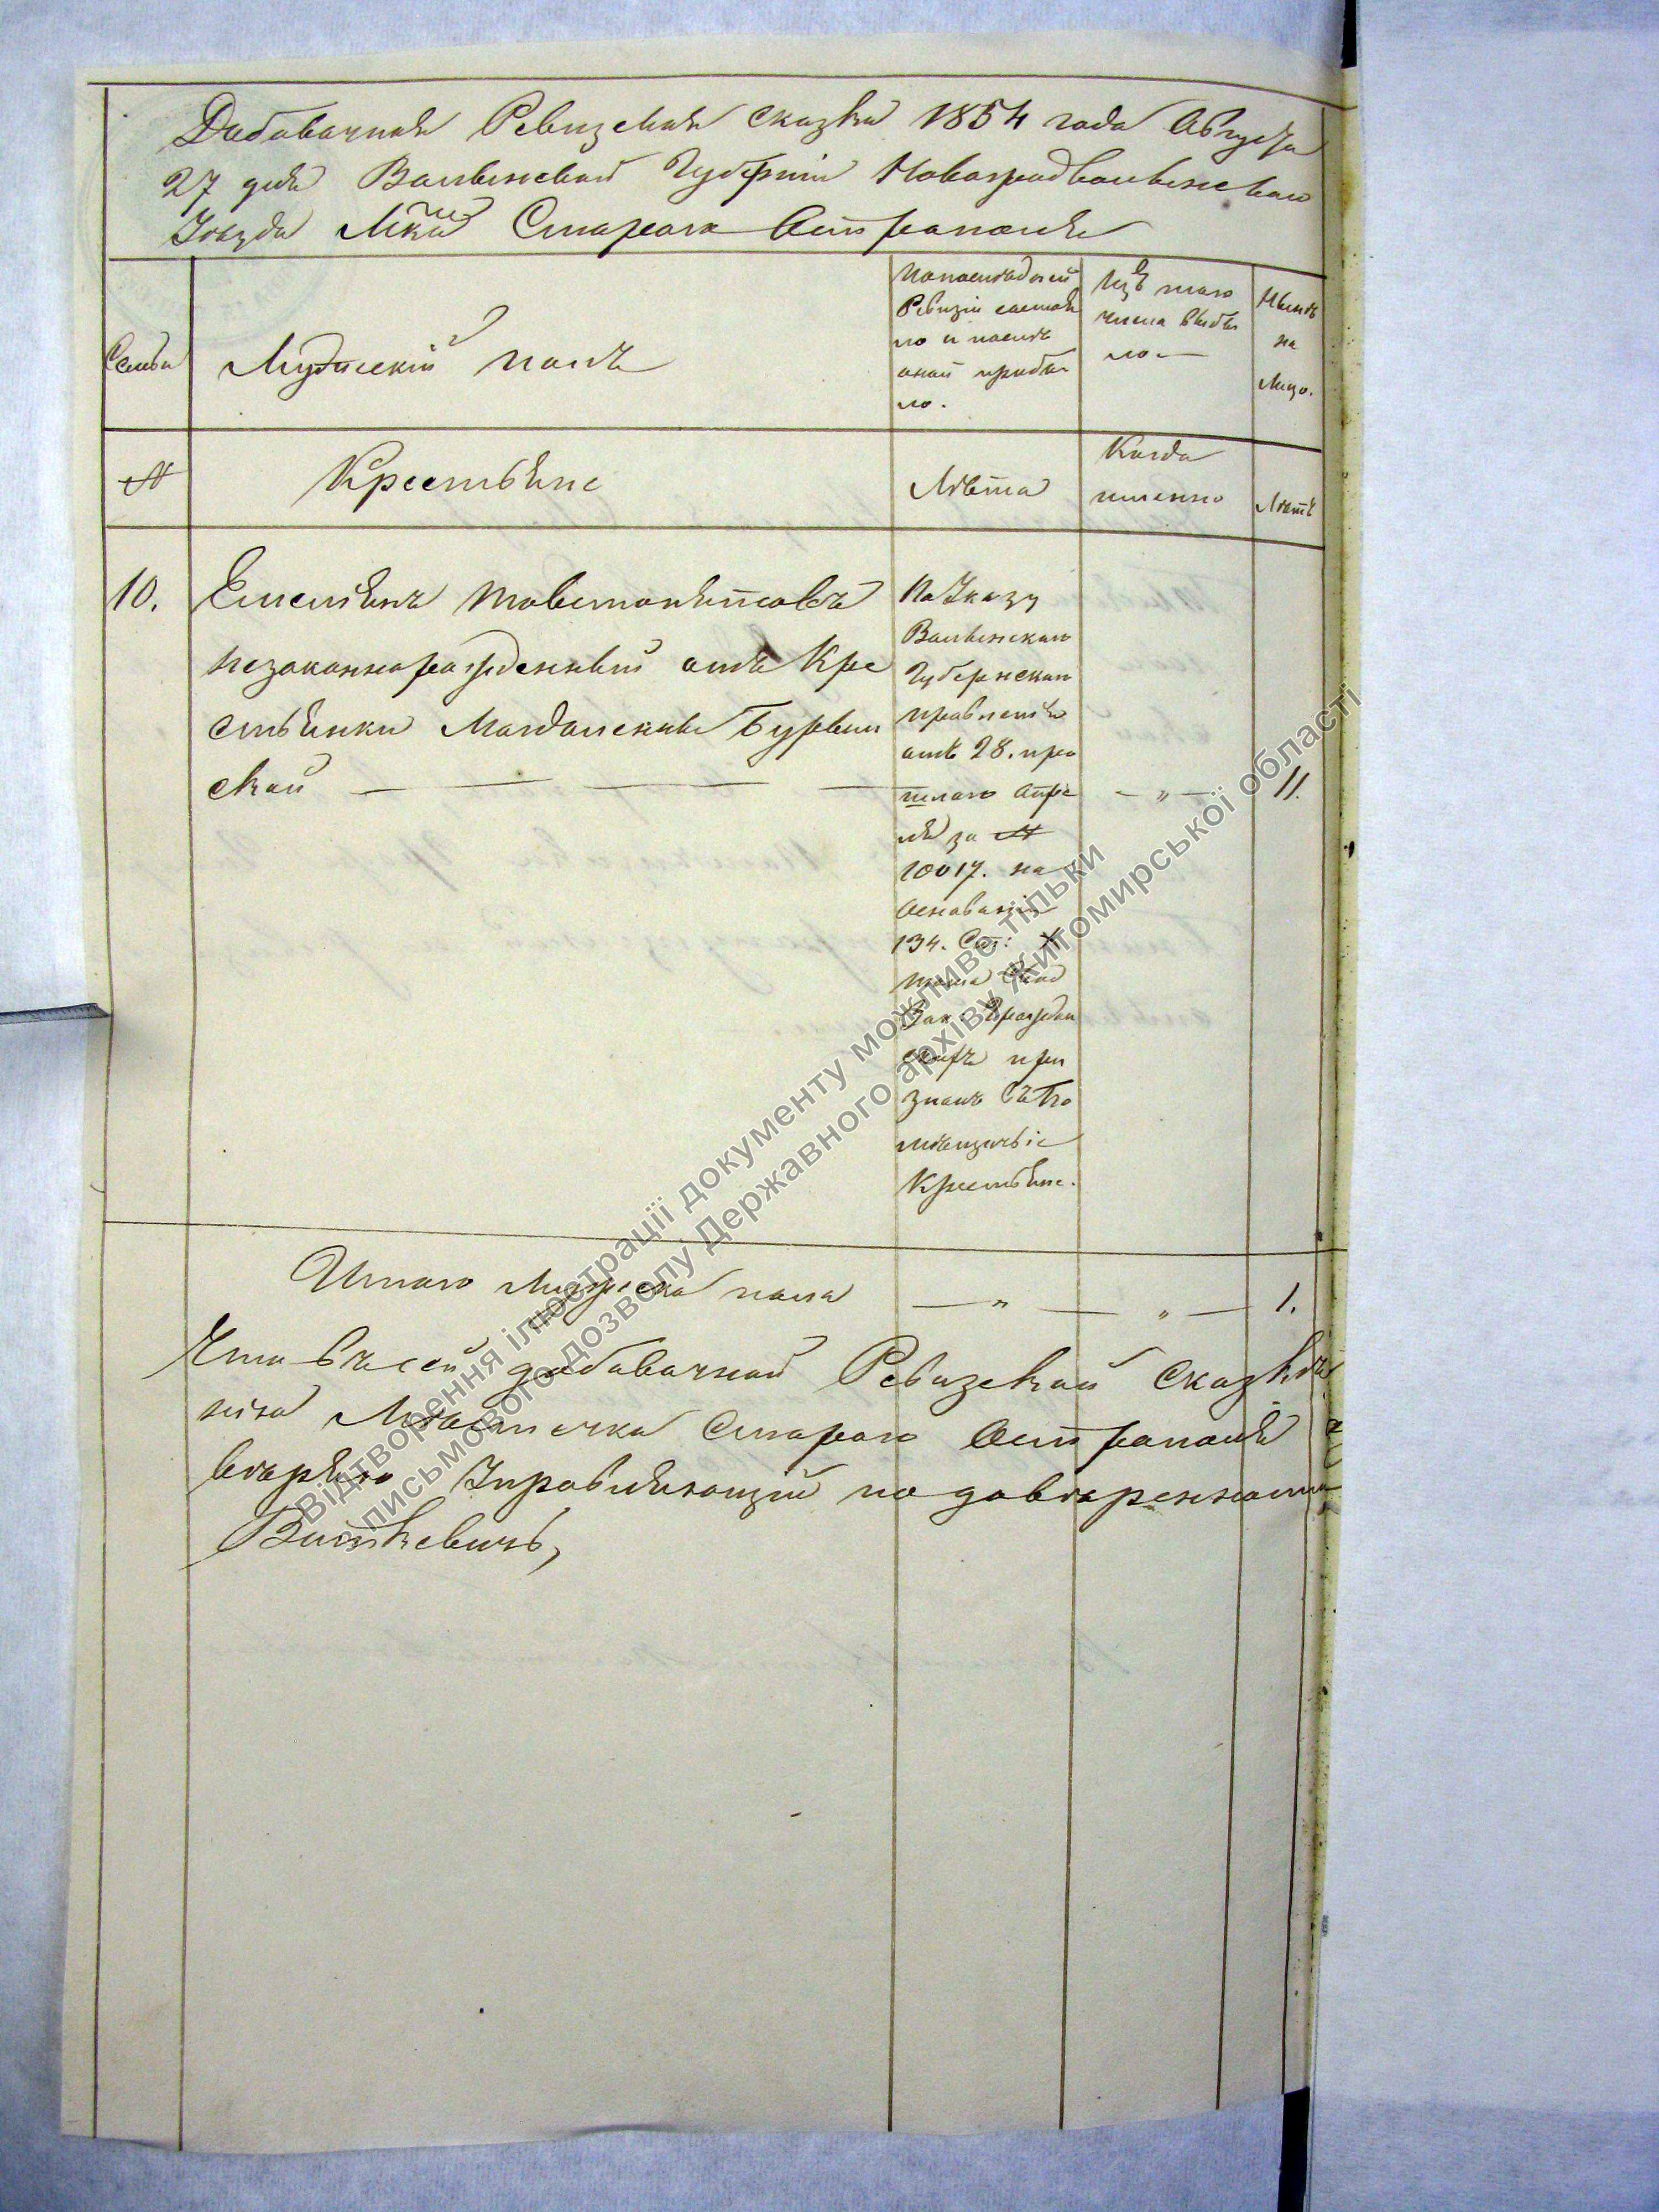 Добавочная Ревизская сказка 1854 года Августа
27 дня Волынской Губерніи Новоградволынскаго
Уезда Мка Стараго Остраполя
Семьи
Мужескій полъ
По последней
Ревизіи состоя
ло и после
оной прибы
ло.
Изъ того
числа выбы
ло
Ныне
на
Лицо.
№
Крестьяне
Лѣта
Когда
именно
Лѣтъ
10.
Емельянъ
незаконнорожденный отъ Кре
стьянки Магдалены Бурвин
ской
По Указу
Волынскаго
Губернскаго
правленія
отъ 28. про
шлаго Апре
ля за №
10017. на
Основаніи
134. Ст: X
тома Свод
Зак: Гражда
при
знанъ въ По
мѣщичьіе
Крестьяне.
— „ —
11.
Итого Мужеска пола — „ — „ — 1.
Что въ сей добавочной Ревизской Сказкѣ
Мѣстечка Стараго Остраполя
Управляющій по довѣренности
Виткевичъ,
Відтворення ілюстрації документу можливо тільки
з письмового дозволу Державного архіву Житомирської області